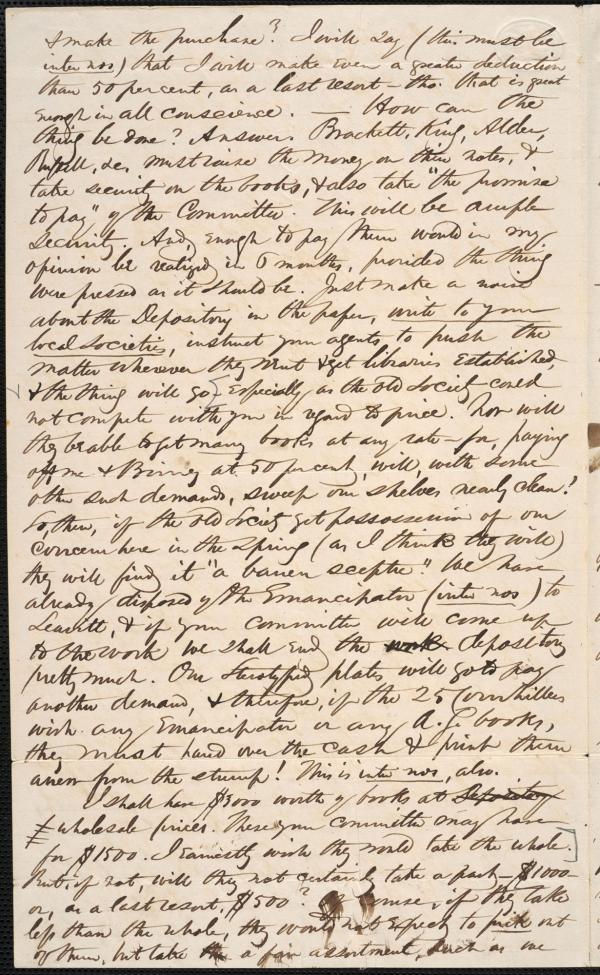 & make the purchase? I will say (this must be
inter nos) that I will make even a greater deduction
than 50 per cent, as a last resort - tho. that is great
enough in all conscience. — How can the
thing be done? Answer. Brackett, King, Alden,
&c. must raise the money on their notes, &
take security on the books, & also take "the promise
to pay" of the Committee. This will be ample
security. And, enough to pay them would in my
opinion be realized in 6 months, provided the thing
were pressed as it should be. Just make a noise
about the Depository in the paper, write to your
local societies, instruct your agents to push the
matter wherever they went & get libraries established,
& the thing will go, especially as the old Society could
not compete with you in regard to price. Nor will
they be able to get many books at any rate - for, paying
off me & Birney at 50 per cent, will, with some
other such demands, sweep our shelves nearly clean!
So, then, if the old Society get possossession of our
concern here in the Spring (as I think they will)
they will find it "a barren sceptre." We have
already disposed of the Emancipator (inter nos) to
Leavitt, & if your committee will come up
to the work we shall end the work depository
pretty much. Our stereotyped plates will go to pay
another demand, & therefore, if the 25 Cornhillers
wish any Emancipator or any A. S. books,
they must hand over the cash & print them
anew from the stump! This is inter nos, also.
I shall have $3000 worth of books at Depository
wholesale prices. These your committee may have
for $1500. I earnestly wish they would take the whole.
But, if not, will they not certainly take a part - $1000
or, as a last resort, $500? Of course, if they take
less than the whole, they would not expect to pick out
of them, but take the a fair assortment, such as we